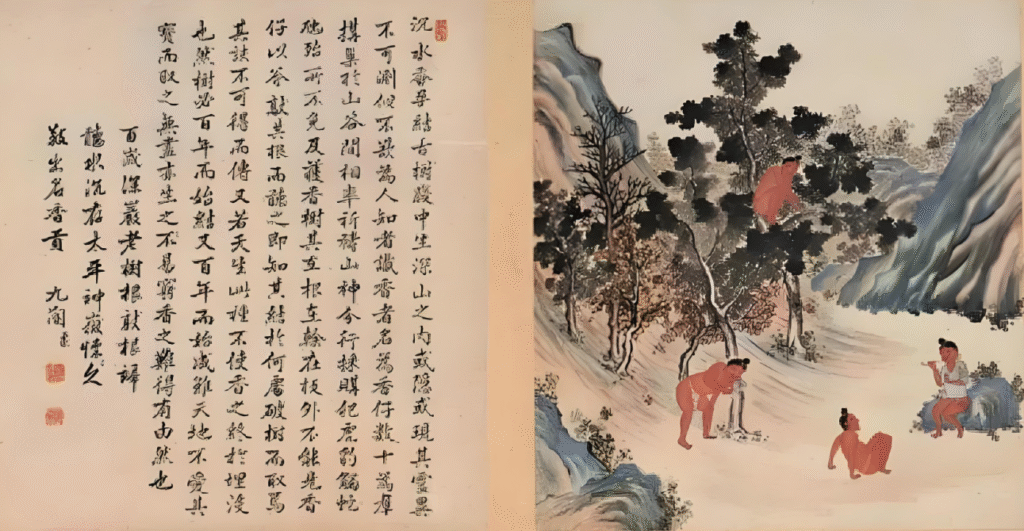 沉水香孕結古樹腹中生深山之內或隱或現其靈異
不可測似不欲為人知者識香者名為香仔數十為羣
構巢於山谷間相率祈禱山神分行採購犯虎豹觸蛇
虺殆所不免及獲香樹其在根在榦在枝外不能見香
仔以斧敲其根而聽之即知其結於何處破樹而取焉
其訣不可得而傳又若天生此種不使香之終於埋沒
也然樹必百年而始結又百年而始成雖天地不愛其
寶而取之無盡亦生之不易窮香之難得有由然也
百歲深巖老樹根敲根諦
聽水沉存太平神嶽懷久
敬出名香貢九閽